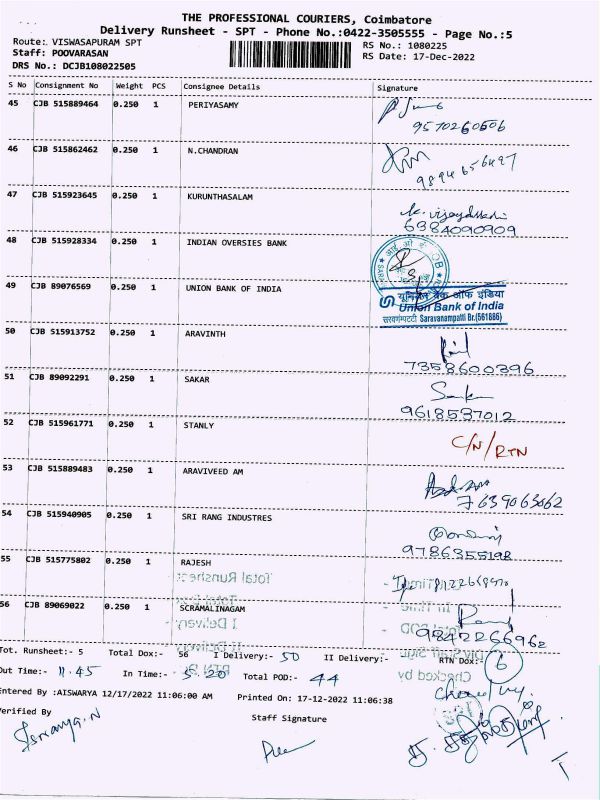 THE PROFESSIONAL COURIERS, Coimbatore
Delivery Runsheet - SPT - Phone No.:0422-3505555 - Page No.:5
Route: VISWASAPURAM SPT
RS No.: 1080225
Staff: POOVARASAN
RS Date: 17-Dec-2022
DRS No.: DCJB108022505
S No Consignment No Weight PCS Consignee Details Signature
45 CJB 515889464 0.250 1 PERIYASAMY
9570260606
46 CJB 515862462 0.250 1 N.CHANDRAN
9894656497
47 CJB 515923645 0.250 1 KURUNTHASALAM
6384090909
48 CJB 515928334 0.250 1 INDIAN OVERSIES BANK
49 CJB 89076569 0.250 1 UNION BANK OF INDIA
यूनियन बैंक ऑफ इंडिया
Union Bank of India
Saravanampatti Br.(561886)
50 CJB 515913752 0.250 1 ARAVINTH
7358600396
51 CJB 89092291 0.250 1 SAKAR
9618537012
52 CJB 515961771 0.250 1 STANLY C/N/RTN
53 CJB 515889483 0.250 1 ARAVIVEED AM
7639063062
54 CJB 515940905 0.250 1 SRI RANG INDUSTRES
9786355198
55 CJB 515775802 0.250 1 RAJESH
56 CJB 89069022 0.250 1 SCRAMALINAGAM
9842266962
Tot. Runsheet:- 5 Total Dox:- 56 I Delivery:- 50 II Delivery:- RTN Dox:- 6
Out Time:- 11.45 In Time:- 5.20 Total POD:- 44
Entered By :AISWARYA 12/17/2022 11:06:00 AM Printed On: 17-12-2022 11:06:38
Verified By
Staff Signature